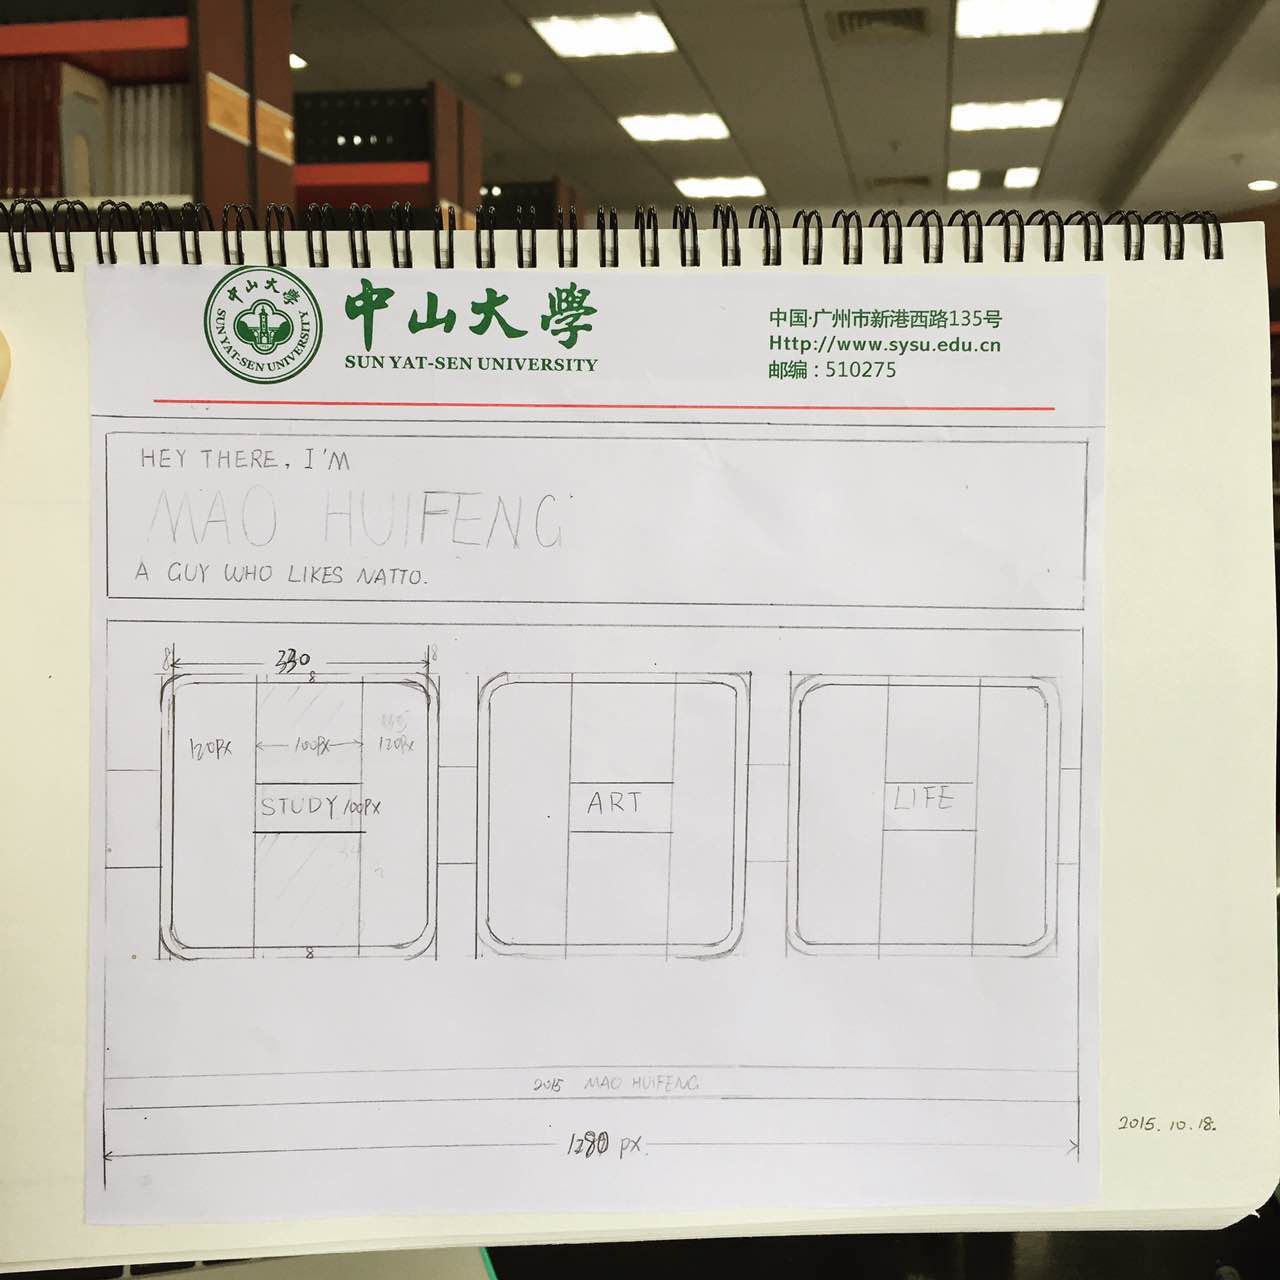 中山大學
SUN YAT-SEN UNIVERSITY
中山大學
SUN YAT-SEN UNIVERSITY
中国·广州市新港西路135号
Http://www.sysu.edu.cn
邮编：510275
HEY THERE, I'M
MAO HUIFENG
A GUY WHO LIKES NATTO.
8 330 8
8
120PX 100PX 120PX
STUDY 100PX
ART
LIFE
8
2015 MAO HUIFENG
1280 PX.
2015.10.18.